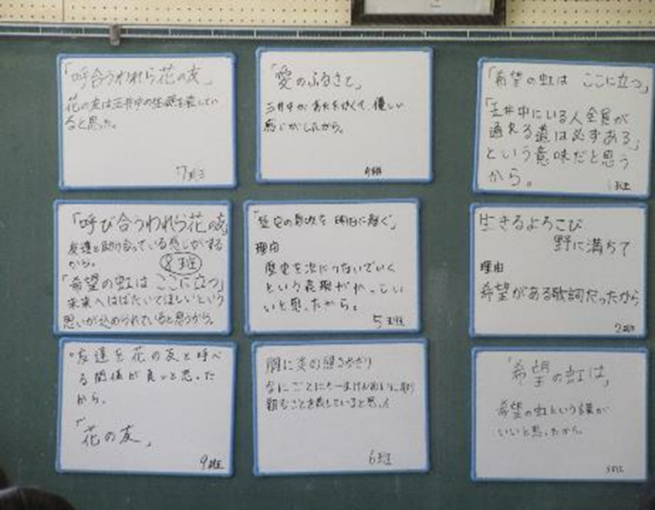 「呼合うわれら花の友」
花の友は三井中の生徒を表してい
ると思った。
7班
「愛のふるさと」
三井中があたたかくて、優しい
感じがしたから。
「希望の虹は ここに立つ」
「三井中にいる人全員が
通れる道は必ずある」
という意味だと思う
から。
1班
「呼び合うわれら花の友」
友達と助け合っている感じがする
から。
8班
「希望の虹は ここに立つ」
未来へはばたいてほしいという
思いが込められていると思うから。
理由
歴史を次につないでいく
という表現がかっこい
いと思ったから。
5班
生きるよろこび
野に満ちて
理由
希望がある歌詞だったから
2班
友達を花の友と呼べ
る関係が良いと思った
から。
「花の友」
9班
胸に炎の
なにごとにも
組むことを表していると思った
6班
「希望の虹は」
希望の虹という言葉が
いいと思ったから。